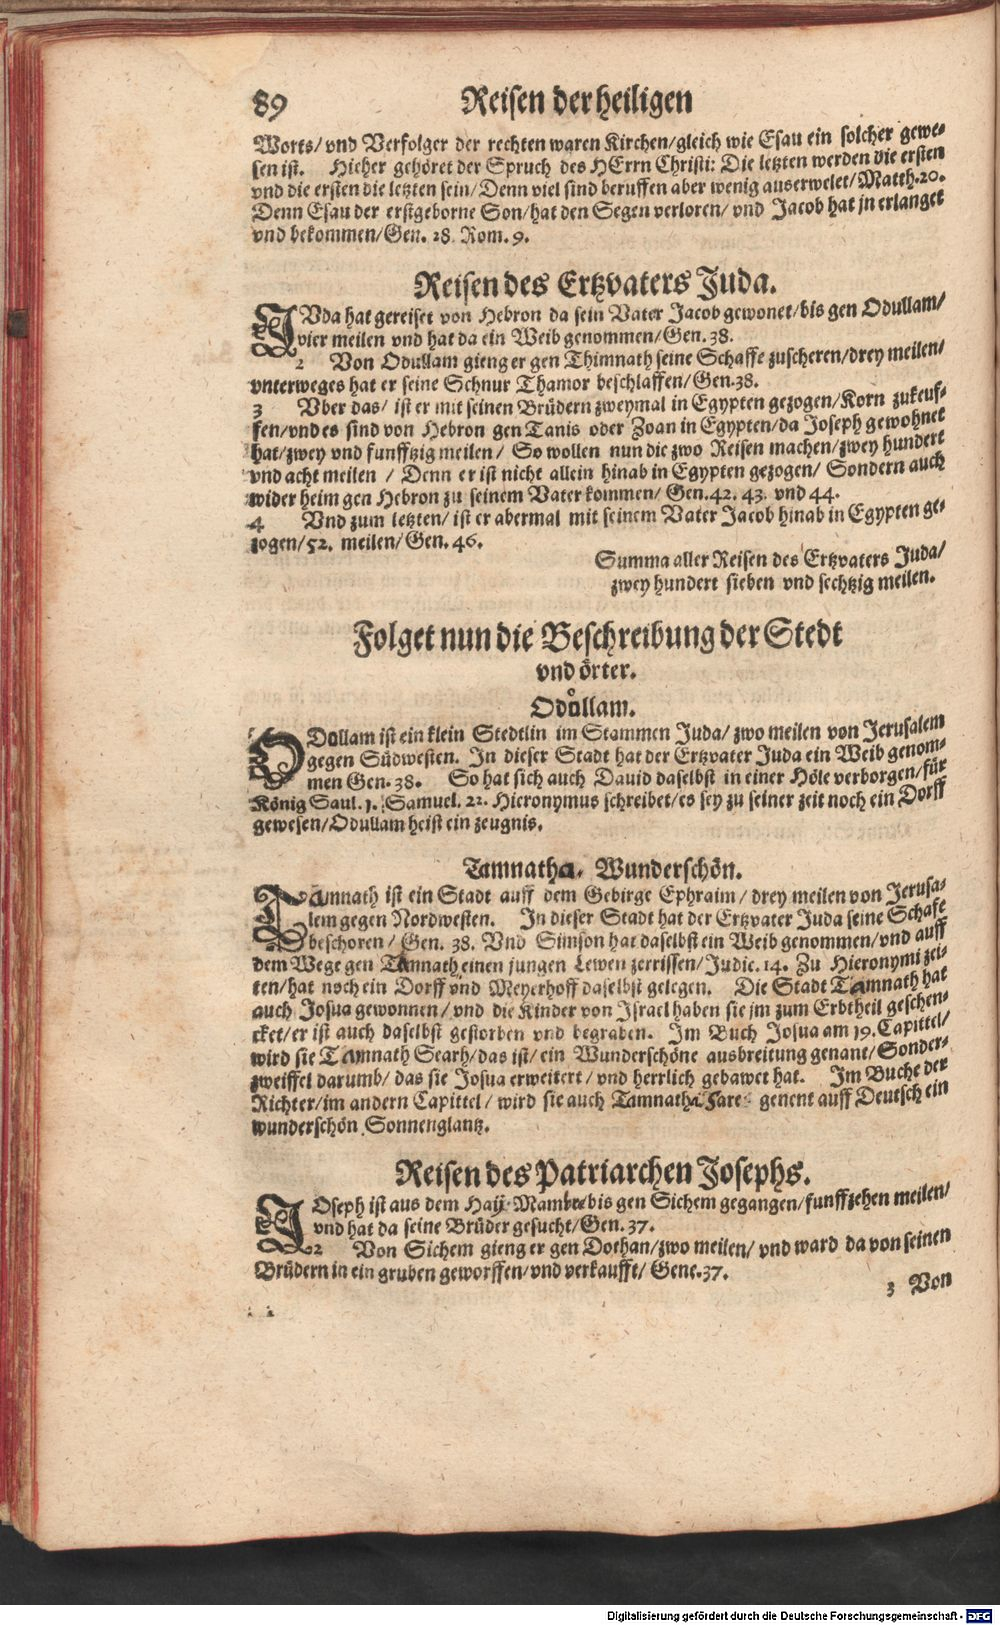 89 Reisen der heiligen
Worts/ vnd Verfolger der rechten waren Kirchen/ gleich wie Esau ein solcher gewe-
sen ist. Hieher gehöret der Spruch des HErrn Christi: Die letzten werden die ersten
vnd die ersten die letzten sein/ Denn viel sind beruffen aber wenig auserwelet/ Matth. 20.
Denn Esau der erstgeborne Son/ hat den Segen verloren/ vnd Jacob hat jn erlanget
vnd bekommen/ Gen. 28. Rom. 9.
Reisen des Ertzvaters Juda.
JVda hat gereiset von Hebron da sein Vater Jacob gewonet/ bis gen Odullam/
vier meilen vnd hat da ein Weib genommen/ Gen. 38.
2 Von Odullam gieng er gen Thimnath seine Schaffe zuscheren/ drey meilen/
vnterweges hat er seine Schnur Thamor beschlaffen/ Gen. 38.
3 Vber das/ ist er mit seinen Brüdern zweymal in Egypten gezogen/ Korn zukeuf-
fen/ vnd es sind von Hebron gen Tanis oder Zoan in Egypten/ da Joseph gewohnet
hat/ zwey vnd funfftzig meilen/ So wollen nun die zwo Reisen machen/ zwey hundert
vnd acht meilen/ Denn er ist nicht allein hinab in Egypten gezogen/ Sondern auch
wider heim gen Hebron zu seinem Vater kommen/ Gen. 42. 43. vnd 44.
4 Vnd zum letzten/ ist er abermal mit seinem Vater Jacob hinab in Egypten ge-
zogen/ 52. meilen/ Gen. 46.
Summa aller Reisen des Ertzvaters Juda/
zwey hundert sieben vnd sechtzig meilen.
Folget nun die Beschreibung der Stedt
vnd örter.
Odůllam.
ODollam ist ein klein Stedtlin im Stammen Juda/ zwo meilen von Jerusalem
gegen Südwesten. In dieser Stadt hat der Ertzvater Juda ein Weib genom-
men Gen. 38. So hat sich auch David daselbst in einer Höle verborgen/ für
König Saul. 1. Samuel. 22. Hieronymus schreibet/ es sey zu seiner zeit noch ein Dorff
gewesen/ Odullam heist ein zeugnis.
Tamnatha. Wunderschön.
TAmnath ist ein Stadt auff dem Gebirge Ephraim/ drey meilen von Jerusa-
lem gegen Nordwesten. In dieser Stadt hat der Ertzvater Juda seine Schafe
beschoren/ Gen. 38. Vnd Simson hat daselbst ein Weib genommen/ vnd auff
dem Wege gen Tamnath einen jungen Lewen zerrissen/ Judic. 14. Zu Hieronymi zei-
ten/ hat noch ein Dorff vnd Meyerhoff daselbst gelegen. Die Stadt Tamnath hat
auch Josua gewonnen/ vnd die Kinder von Israel haben sie jm zum Erbtheil geschen-
cket/ er ist auch daselbst gestorben vnd begraben. Im Buch Josua am 19. Capittel/
wird sie Tamnath Searh/ das ist/ ein Wunderschöne ausbreitung genant/ Sonder-
zweiffel darumb/ das sie Josua erweitert/ vnd herrlich gebawet hat. Im Buche der
Richter/ im andern Capittel/ wird sie auch Tamnatha Fares genent auff Deutsch ein
wunderschön Sonnenglantz.
Reisen des Patriarchen Josephs.
JOseph ist aus dem Hayn Mambre bis gen Sichem gegangen/ funffzehen meilen/
vnd hat da seine Brüder gesucht/ Gen. 37.
2 Von Sichem gieng er gen Dothan/ zwo meilen/ vnd ward da von seinen
Brüdern in ein gruben geworffen/ vnd verkaufft/ Gene. 37.
3 Von
Digitalisierung gefördert durch die Deutsche Forschungsgemeinschaft - DFG